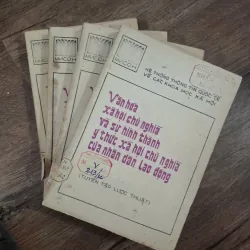 HỆ THỐNG THÔNG TIN QUỐC TẾ
VỀ CÁC KHOA HỌC XÃ HỘI
Văn hóa
xã hội chủ nghĩa
và sự hình thành
ý thức xã hội chủ nghĩa
của nhân dân lao động
(TUYỂN TẬP LƯỢC THUẬT)